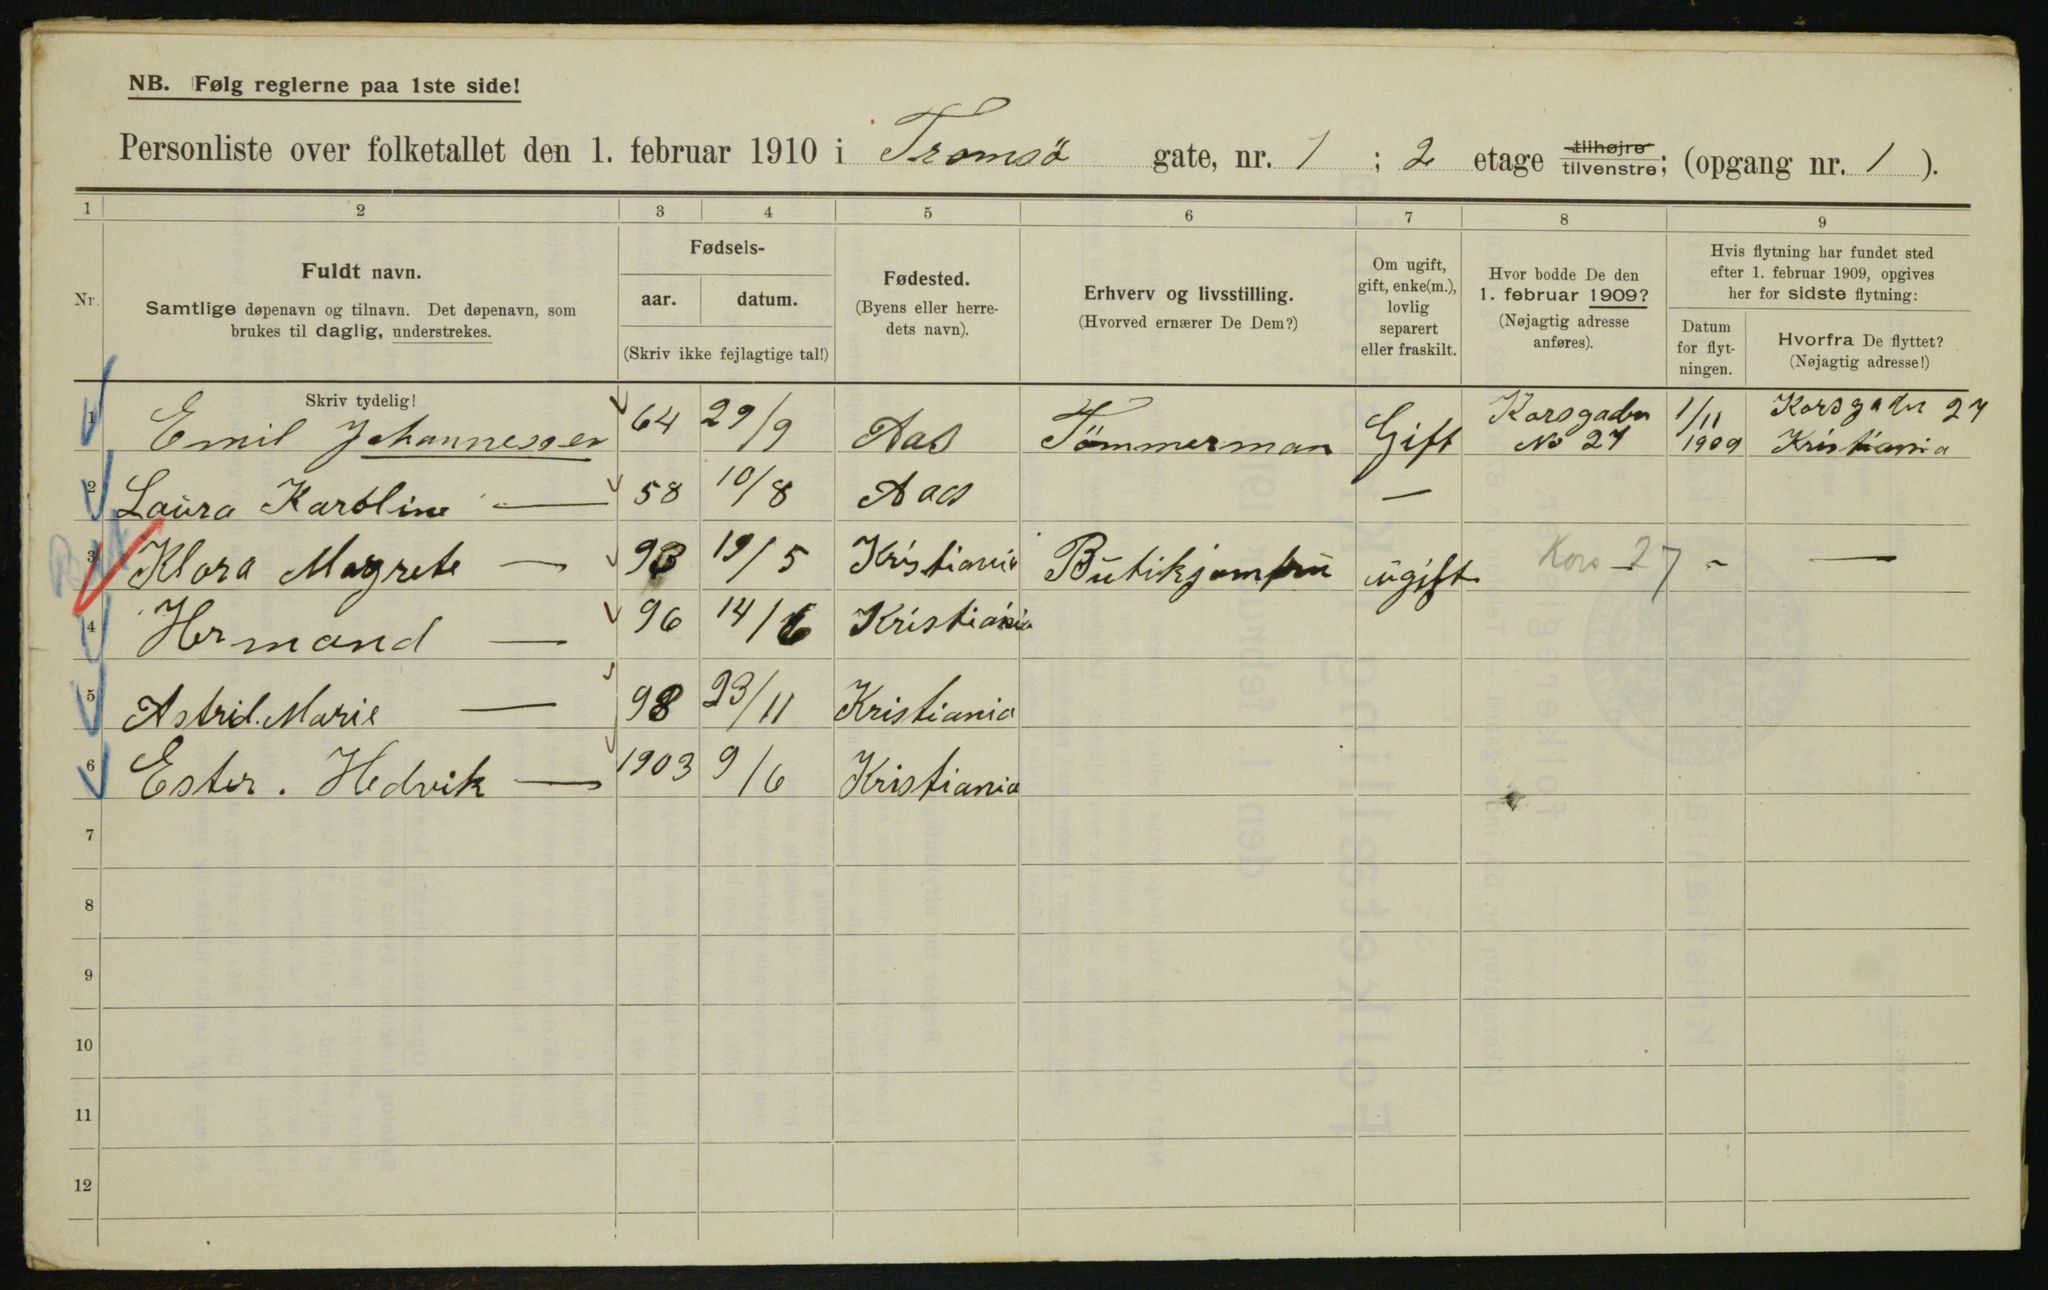 NB. Følg reglerne paa 1ste side!
Personliste over folketallet den 1. februar 1910 i Tromsö gate, nr. 1 ; 2 etage tilhøjre tilvenstre; (opgang nr. 1 ).
1 2 3 4 5 6 7 8 9
Nr.
Fuldt navn.
Samtlige døpenavn og tilnavn. Det døpenavn, som
brukes til daglig, understrekes.
Fødsels-
aar. datum.
(Skriv ikke fejlagtige tal!)
Fødested.
(Byens eller herre-
dets navn).
Erhverv og livsstilling.
(Hvorved ernærer De Dem?)
Om ugift,
gift, enke(m.),
lovlig
separert
eller fraskilt.
Hvor bodde De den
1. februar 1909?
(Nøjagtig adresse
anføres).
Hvis flytning har fundet sted
efter 1. februar 1909, opgives
her for sidste flytning:
Datum
for flyt-
ningen.
Hvorfra De flyttet?
(Nøjagtig adresse!)
Skriv tydelig!
1 Emil Johannessen 64 29/9 Aas Tömmerman Gift Korsgaden No 27 1/11 1909 Korsgaden 27 Kristiania
2 Laura Karoline — 58 10/8 Aas —
3 Klara Magrete — 93 19/5 Kristiania Butikjomfru ugift Kors 27 - —
4 Hermand — 96 14/6 Kristiania
5 Astrid. Marie — 98 23/11 Kristiania
6 Ester. Hedvik — 1903 9/6 Kristiania
7
8
9
10
11
12